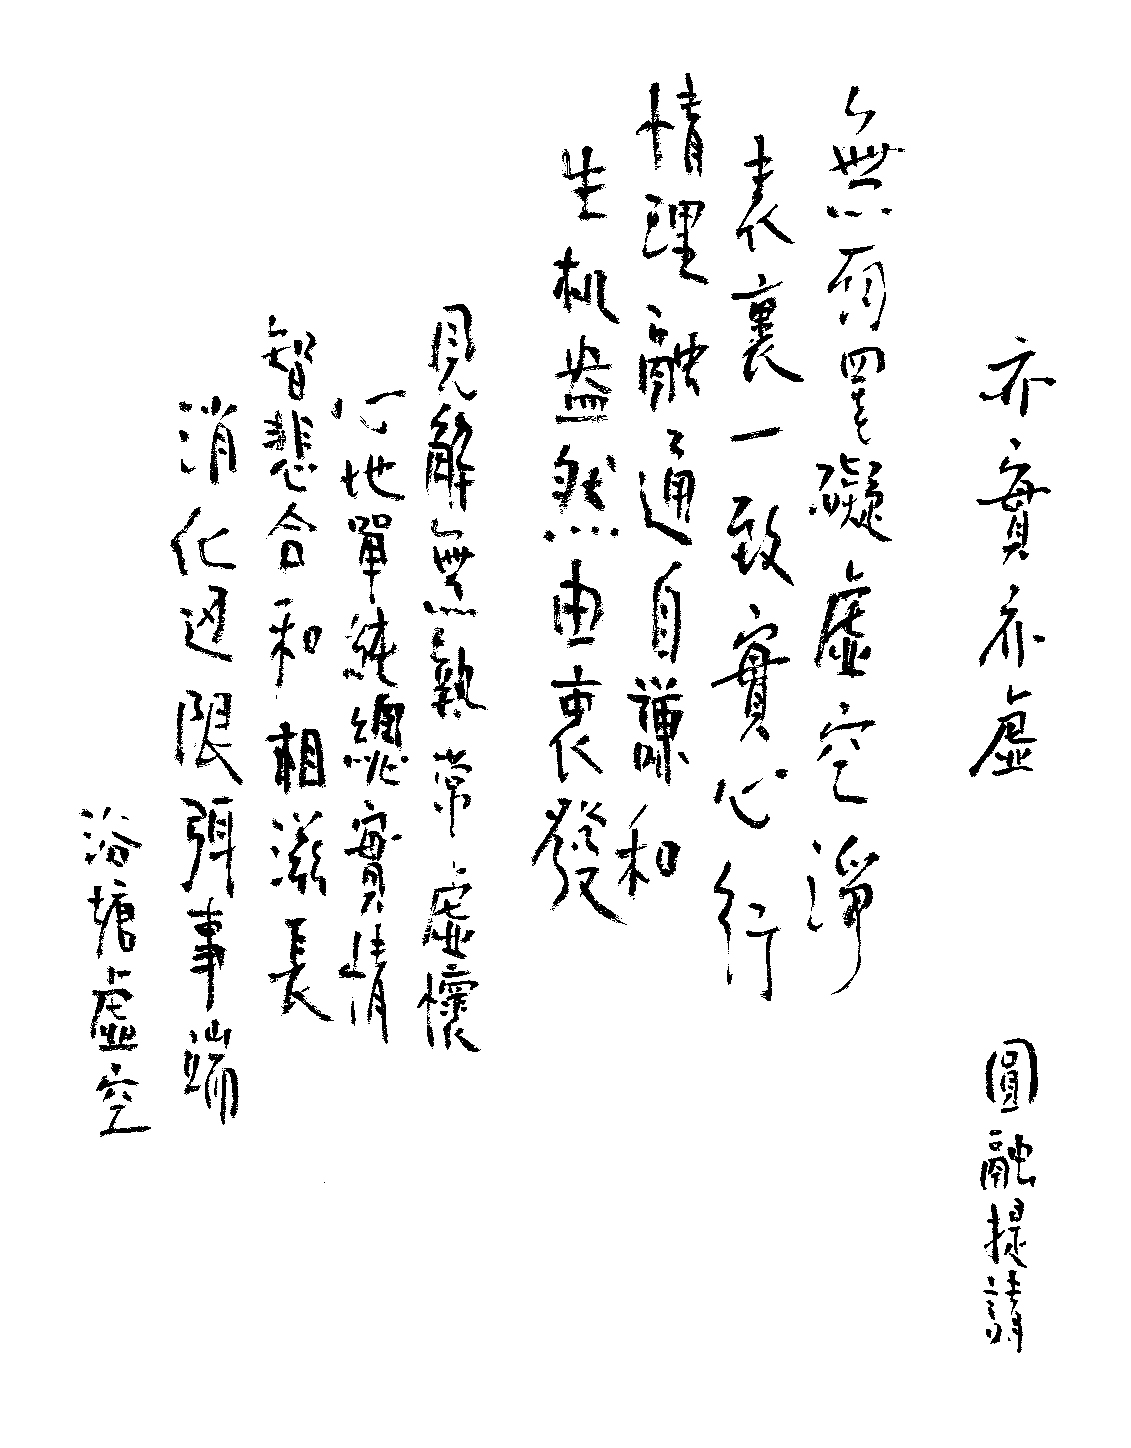 亦實亦虛 圓融提請
無有罣礙虛空淨
表裏一致實心行
情理融通自謙和
生机盎然由衷發
見解無執常虛懷
心地單純總實情
智悲合和相滋長
消化限弭事端
浴塘虛空